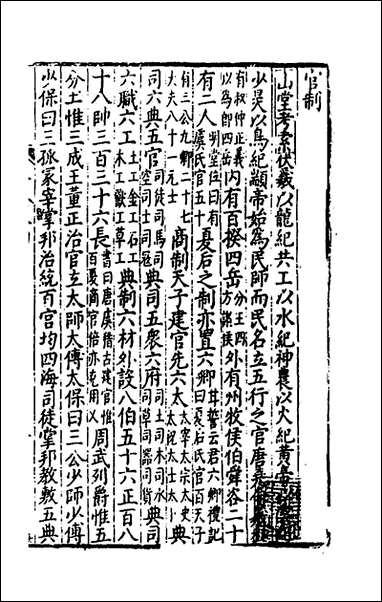 官制
山堂考索伏羲以龍紀共工以水紀神農以火紀黃帝
少昊以鳥紀顓帝始爲民師而民名立五行之官唐
有叔仲正義以爲卽四岳内有百揆四岳分王四方諸侯外有州牧侯伯舜咨二十
有二人明堂位曰有虞氏官五十夏后之制亦置六卿甘誓云召六卿禮記曰夏后氏官百天子
有三公九卿二十七大夫八十一元士商制天子建官先六太太宰太宗太史太祝太士太卜典
司六典五官司徒司馬司空司士司寇典司五衆六府司土司木司水司草司器司貨典司
六職六工土工金工石工木工獸工草工典制六材外設八伯五十六正百八
十八帥三百三十六長書曰唐虞稽古建官惟百夏商官倍亦克用乂周武列爵惟五
分土惟三成王董正治官立太師太傅太保曰三公少師少傅
少保曰三孤冢宰掌邦治統百官均四海司徒掌邦教敷五典